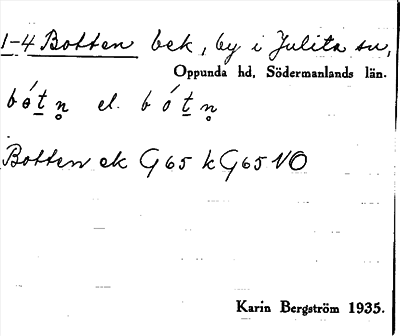 1-4 Botten bek, by i Julita sn,
Oppunda hd, Södermanlands län.
bót̲n̥ el. bót̲n̥
Botten ek G65 k G65 NO
Karin Bergström 1935.